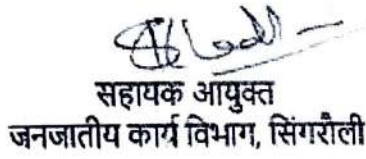 सहायक आयुक्त
जनजातीय कार्य विभाग, सिंगरौली